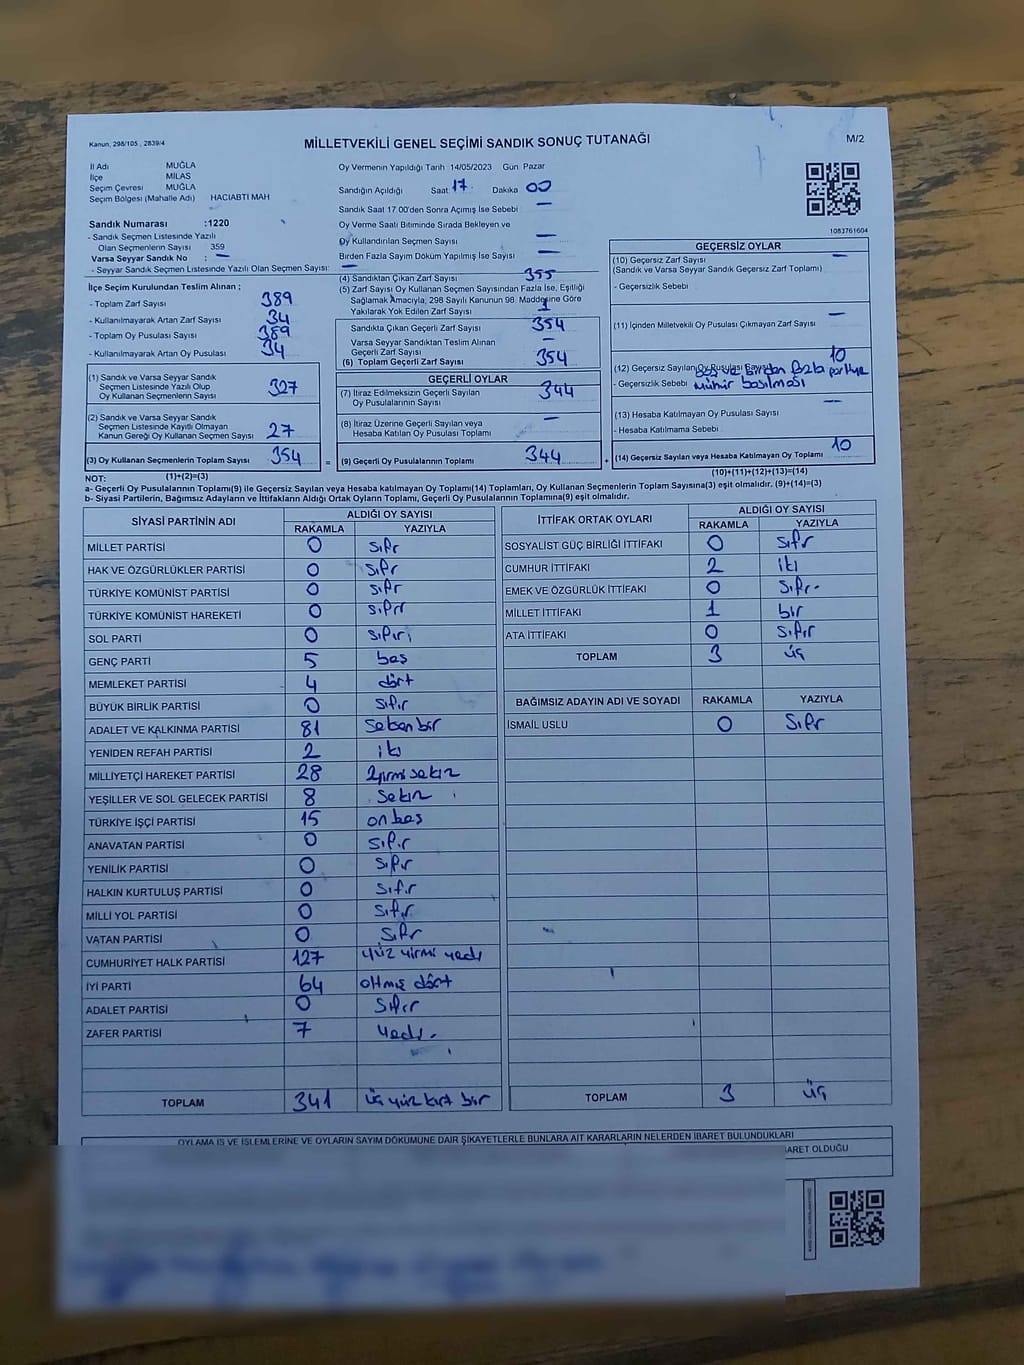 Kanun, 298/105 , 2839/4
MİLLETVEKİLİ GENEL SEÇİMİ SANDIK SONUÇ TUTANAĞI
M/2
İl Adı : MUĞLA
İlçe : MİLAS
Seçim Çevresi : MUĞLA
Seçim Bölgesi (Mahalle Adı) : HACIABTI MAH
Sandık Numarası :1220
- Sandık Seçmen Listesinde Yazılı
Olan Seçmenlerin Sayısı : 359
Varsa Seyyar Sandık No : —
- Seyyar Sandık Seçmen Listesinde Yazılı Olan Seçmen Sayısı: —
Oy Vermenin Yapıldığı Tarih 14/05/2023 Gün Pazar
Sandığın Açıldığı Saat 17 Dakika 00
Sandık Saat 17 00'den Sonra Açımış İse Sebebi —
Oy Verme Saati Bitiminde Sırada Bekleyen ve
Oy Kullandırılan Seçmen Sayısı —
Birden Fazla Sayım Döküm Yapılmış İse Sayısı —
1083761604
İlçe Seçim Kurulundan Teslim Alınan ;
- Toplam Zarf Sayısı 389
- Kullanılmayarak Artan Zarf Sayısı 34
- Toplam Oy Pusulası Sayısı 389
- Kullanılmayarak Artan Oy Pusulası 34
(1) Sandık ve Varsa Seyyar Sandık
Seçmen Listesinde Yazılı Olup
Oy Kullanan Seçmenlerin Sayısı 327
(2) Sandık ve Varsa Seyyar Sandık
Seçmen Listesinde Kayıtlı Olmayan
Kanun Gereği Oy Kullanan Seçmen Sayısı 27
(3) Oy Kullanan Seçmenlerin Toplam Sayısı 354 =
(4) Sandıktan Çıkan Zarf Sayısı 355
(5) Zarf Sayısı Oy Kullanan Seçmen Sayısından Fazla İse, Eşitliği
Sağlamak Amacıyla, 298 Sayılı Kanunun 98. Maddesine Göre
Yakılarak Yok Edilen Zarf Sayısı 1
Sandıkta Çıkan Geçerli Zarf Sayısı 354
Varsa Seyyar Sandıktan Teslim Alınan
Geçerli Zarf Sayısı —
(6) Toplam Geçerli Zarf Sayısı 354
GEÇERLİ OYLAR
(7) İtiraz Edilmeksizin Geçerli Sayılan
Oy Pusulalarının Sayısı 344
(8) İtiraz Üzerine Geçerli Sayılan veya
Hesaba Katılan Oy Pusulası Toplamı —
(9) Geçerli Oy Pusulalarının Toplamı 344 +
GEÇERSİZ OYLAR
(10) Geçersiz Zarf Sayısı —
(Sandık ve Varsa Seyyar Sandık Geçersiz Zarf Toplamı)
- Geçersizlik Sebebi :
(11) İçinden Milletvekili Oy Pusulası Çıkmayan Zarf Sayısı —
(12) Geçersiz Sayılan Oy Pusulası Sayısı 10
- Geçersizlik Sebebi : boş ve birden fazla partiye
mühür basılması
(13) Hesaba Katılmayan Oy Pusulası Sayısı —
- Hesaba Katılmama Sebebi :
(14) Geçersiz Sayılan veya Hesaba Katılmayan Oy Toplamı 10
NOT: (1)+(2)=(3)
(10)+(11)+(12)+(13)=(14)
a- Geçerli Oy Pusulalarının Toplamı(9) ile Geçersiz Sayılan veya Hesaba katılmayan Oy Toplamı(14) Toplamları, Oy Kullanan Seçmenlerin Toplam Sayısına(3) eşit olmalıdır. (9)+(14)=(3)
b- Siyasi Partilerin, Bağımsız Adayların ve İttifakların Aldığı Ortak Oyların Toplamı, Geçerli Oy Pusulalarının Toplamına(9) eşit olmalıdır.
SİYASİ PARTİNİN ADI ALDIĞI OY SAYISI
RAKAMLA YAZIYLA
MİLLET PARTİSİ 0 sıfır
HAK VE ÖZGÜRLÜKLER PARTİSİ 0 sıfır
TÜRKİYE KOMÜNİST PARTİSİ 0 sıfır
TÜRKİYE KOMÜNİST HAREKETİ 0 sıfır
SOL PARTİ 0 sıfır
GENÇ PARTİ 5 beş
MEMLEKET PARTİSİ 4 dört
BÜYÜK BİRLİK PARTİSİ 0 sıfır
ADALET VE KALKINMA PARTİSİ 81 seksen bir
YENİDEN REFAH PARTİSİ 2 iki
MİLLİYETÇİ HAREKET PARTİSİ 28 yirmi sekiz
YEŞİLLER VE SOL GELECEK PARTİSİ 8 sekiz
TÜRKİYE İŞÇİ PARTİSİ 15 on beş
ANAVATAN PARTİSİ 0 sıfır
YENİLİK PARTİSİ 0 sıfır
HALKIN KURTULUŞ PARTİSİ 0 sıfır
MİLLİ YOL PARTİSİ 0 sıfır
VATAN PARTİSİ 0 sıfır
CUMHURİYET HALK PARTİSİ 127 yüz yirmi yedi
İYİ PARTİ 64 altmış dört
ADALET PARTİSİ 0 sıfır
ZAFER PARTİSİ 7 yedi
TOPLAM 341 üç yüz kırk bir
İTTİFAK ORTAK OYLARI ALDIĞI OY SAYISI
RAKAMLA YAZIYLA
SOSYALİST GÜÇ BİRLİĞİ İTTİFAKI 0 sıfır
CUMHUR İTTİFAKI 2 iki
EMEK VE ÖZGÜRLÜK İTTİFAKI 0 sıfır
MİLLET İTTİFAKI 1 bir
ATA İTTİFAKI 0 sıfır
TOPLAM 3 üç
BAĞIMSIZ ADAYIN ADI VE SOYADI RAKAMLA YAZIYLA
İSMAİL USLU 0 sıfır
TOPLAM 3 üç
OYLAMA İŞ VE İŞLEMLERİNE VE OYLARIN SAYIM DÖKÜMÜNE DAİR ŞİKAYETLERLE BUNLARA AİT KARARLARIN NELERDEN İBARET BULUNDUKLARI
BARET OLDUĞU